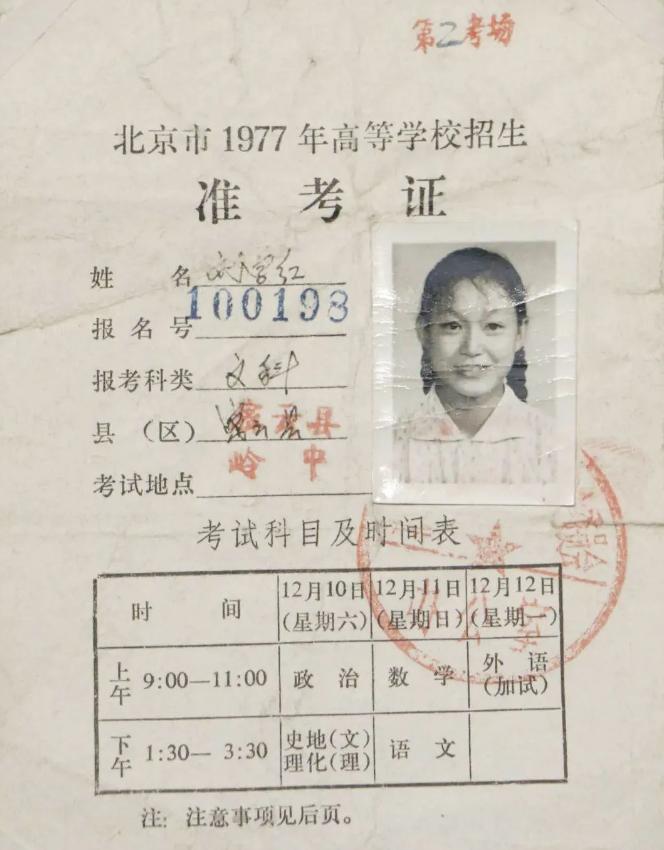 第2考场
北京市1977年高等学校招生
准考证
姓名 刘学红
报名号 100198
报考科类 文科
县（区） 密云县
密云县
考试地点 岭中
考试科目及时间表
时间 12月10日（星期六） 12月11日（星期日） 12月12日（星期一）
上午 9:00—11:00 政治 数学 外语（加试）
下午 1:30—3:30 史地（文）理化（理） 语文
注：注意事项见后页。